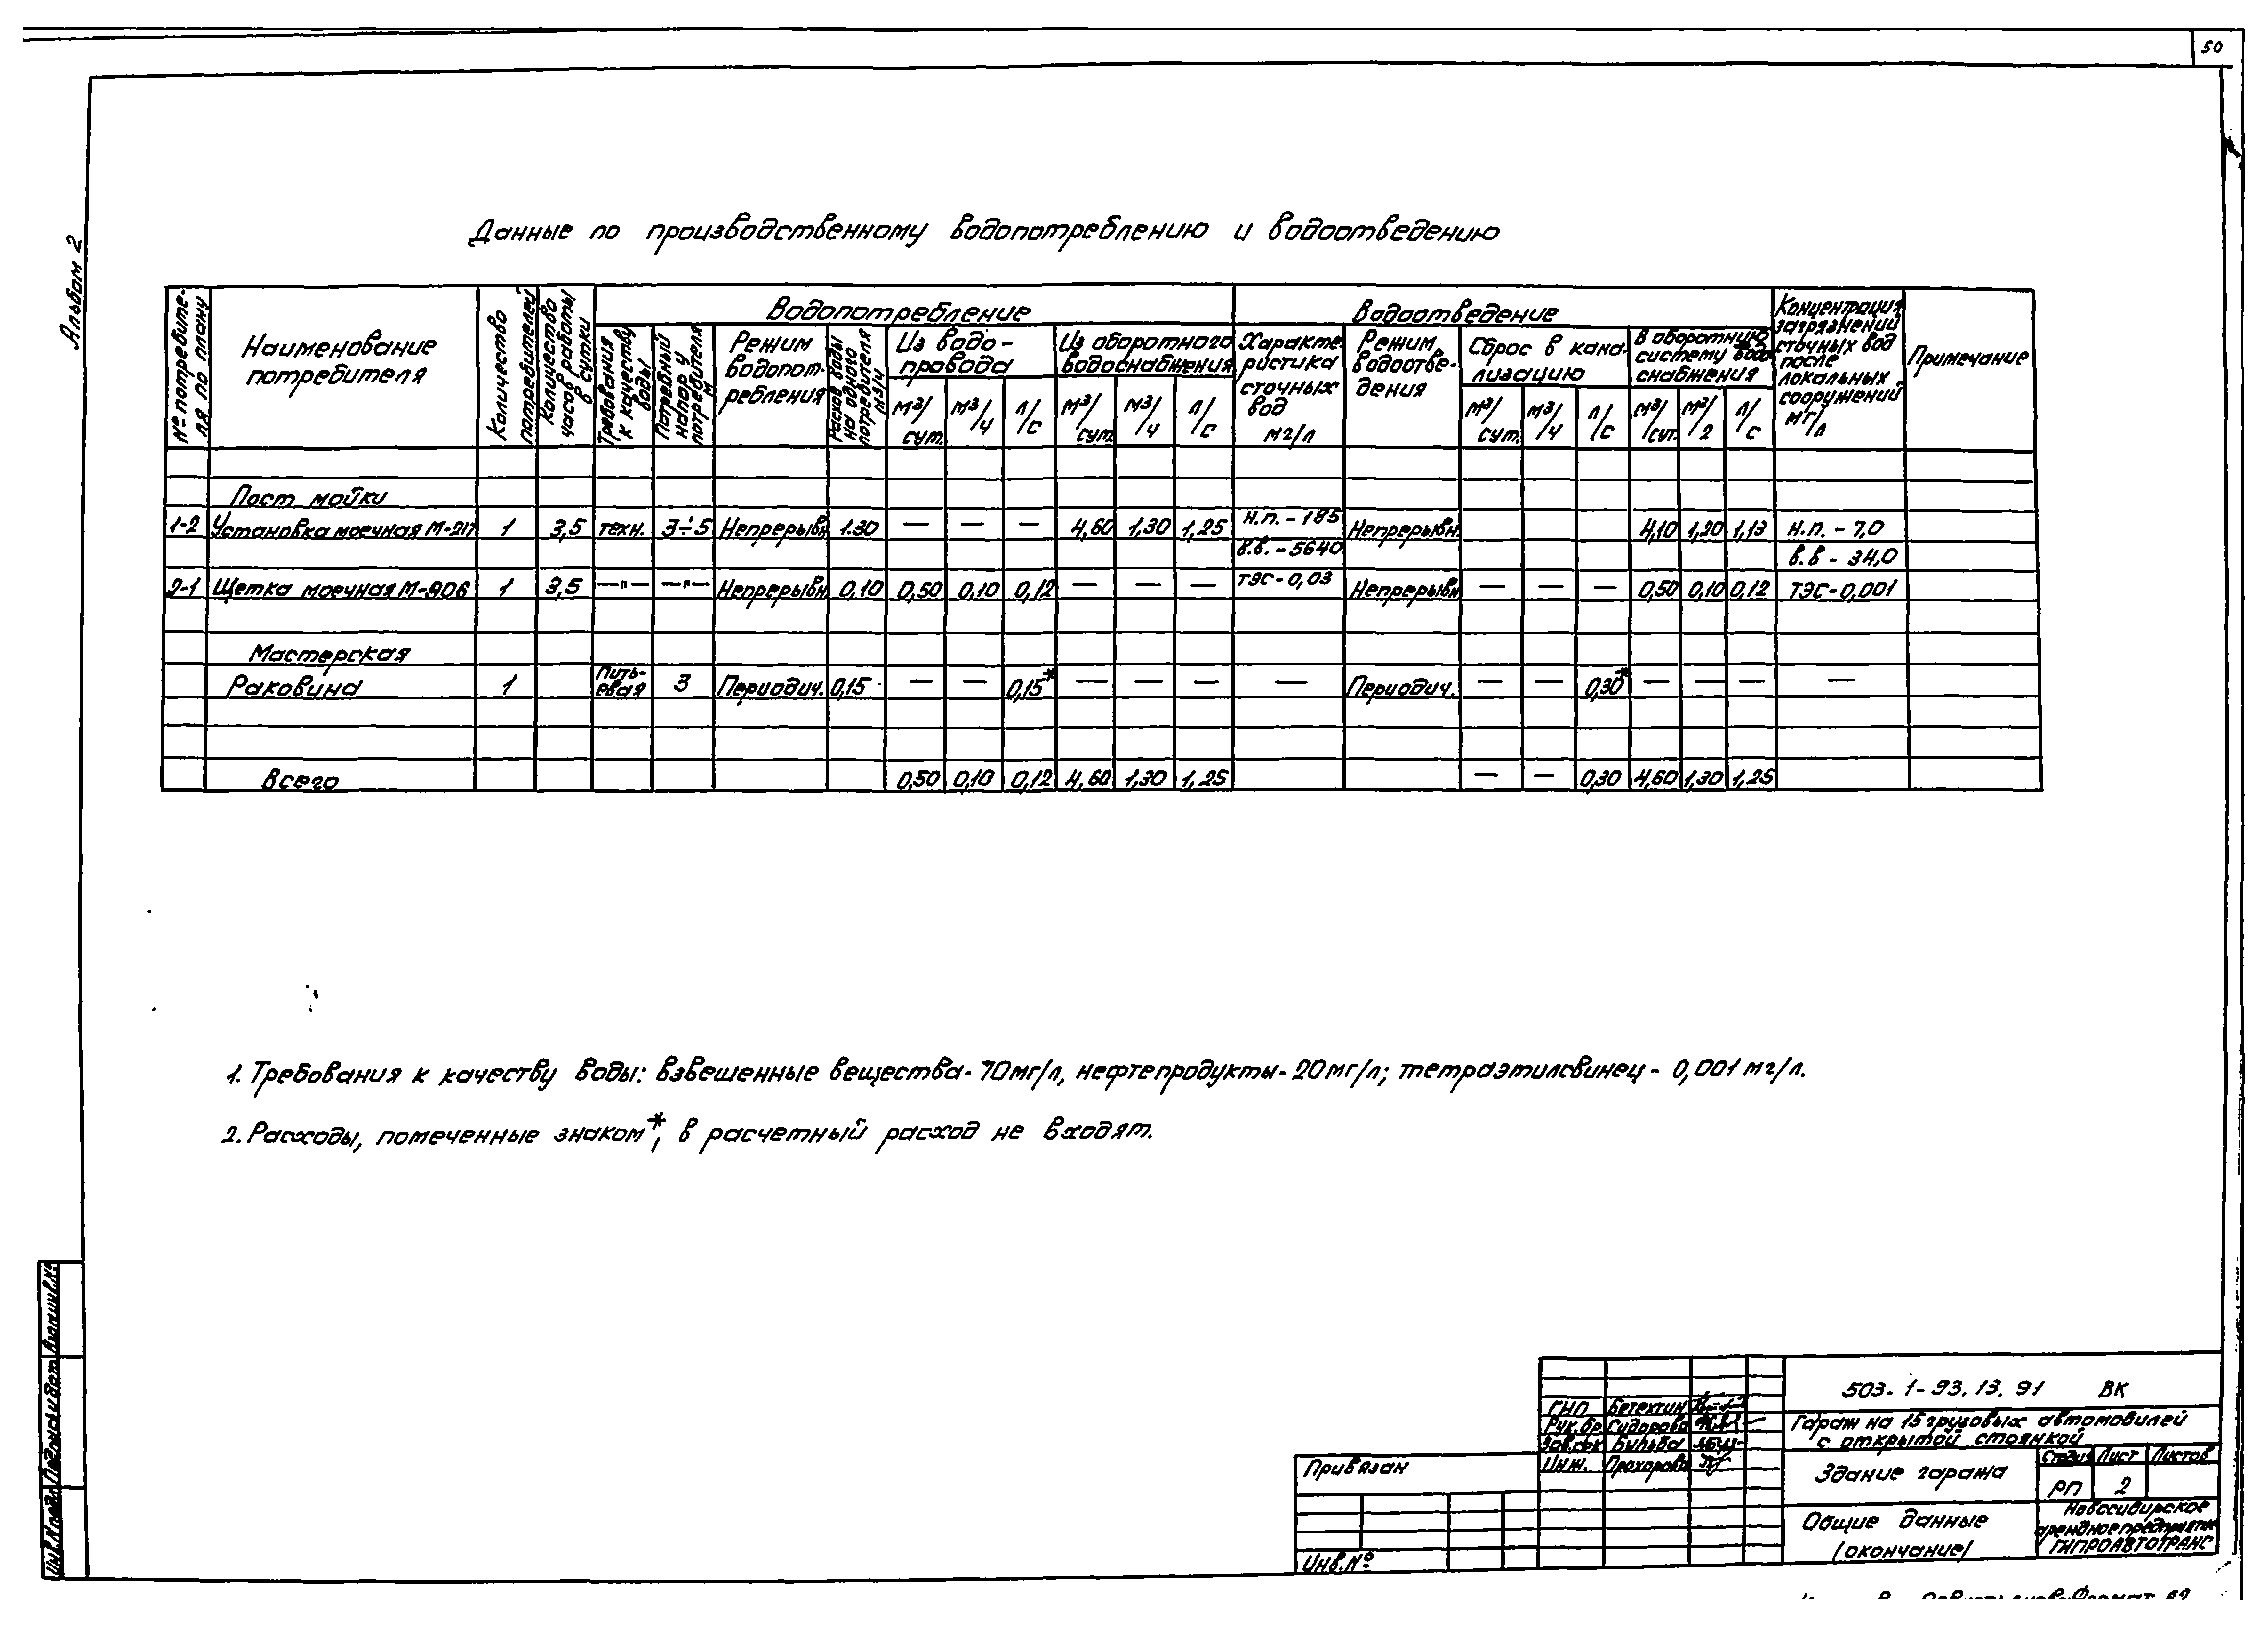 50
Альбом 2
Данные по производственному водопотреблению и водоотведению
№ потребите-
ля по плану
Наименование
потребителя
Количество
потребителей
Количество
часов работы
в сутки
Водопотребление
Требования
к качеству
воды
Потребный
напор у
потребителя
м
Режим
водопот-
ребления
Расход воды
на одного
потребителя
м3/ч
Из водо-
провода
м3/сут. м3/ч л/с
Из оборотного
водоснабжения
м3/сут. м3/ч л/с
Водоотведение
Характе-
ристика
сточных
вод
мг/л
Режим
водоотве-
дения
Сброс в кана-
лизацию
м3/сут. м3/ч л/с
В оборотную
систему водо-
снабжения
м3/сут. м3/2 л/с
Концентрация
загрязнений
сточных вод
после
локальных
сооружений
мг/л
Примечание
Пост мойки
1-2 Установка моечная М-217 1 3,5 техн. 3÷5 Непрерывн 1.30 — — — 4,60 1,30 1,25 н.п. - 185 Непрерывн. 4,10 1,20 1,13 н.п. - 7,0
в.в. - 5640 в.в - 34,0
2-1 Щетка моечная М-906 1 3,5 —"— —"— Непрерывн 0,10 0,50 0,10 0,12 — — — ТЭС - 0,03 Непрерывн — — — 0,50 0,10 0,12 ТЭС - 0,001
Мастерская
Раковина 1 Пить-
евая 3 Периодич. 0,15 — — 0,15* — — — — Периодич. — — 0,30* — — — —
Всего 0,50 0,10 0,12 4,60 1,30 1,25 — — 0,30 4,60 1,30 1,25
1. Требования к качеству воды: взвешенные вещества - 70мг/л, нефтепродукты - 20мг/л; тетраэтилсвинец - 0,001 мг/л.
2. Расходы, помеченные знаком *, в расчетный расход не входят.
Взам.инв.№
Подпись и дат
Инв.№подл.
Привязан
Инв.№
ГНП Бетехтин
Рук.бр Сидорова
Зав.сек Бульба
Инж. Прохорова
503-1-93.13.91 ВК
Гараж на 15 грузовых автомобилей
с открытой стоянкой
Здание гаража
Стадия Лист Листов
РП 2
Общие данные
(окончание)
Новосибирское
арендное предприятие
ГИПРОАВТОТРАНС
Формат А2